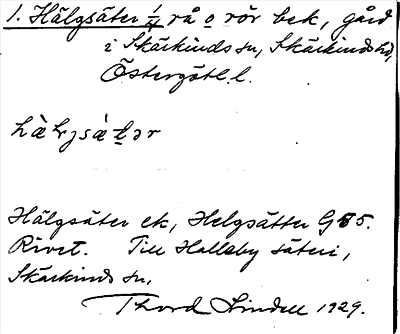 1. Hälgsäter 1/4 rå o rör bek, gård
i Skärkinds sn, Skärkinds hd,
Östergötl. l.
Hälgsäter ek, Helgsätter G 5.
Rivet. Till Halleby säteri,
Skärkinds sn,
Thord Lindell 1929.